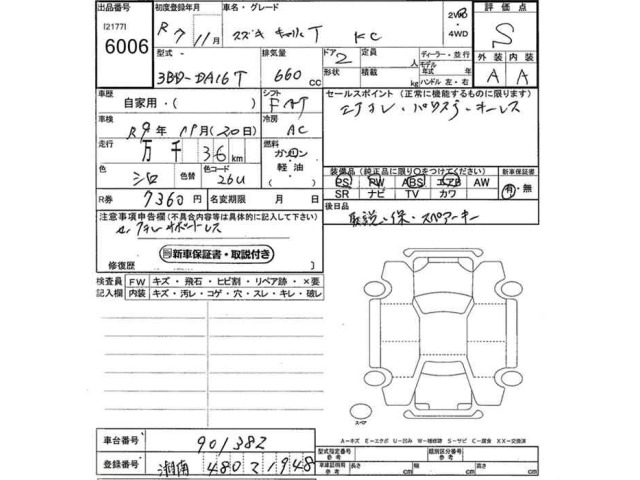 出品番号 初度登録年月 車名・グレード 2WD 評価点
[2177]
6006 R7 11月 スズキ キャリィT KC ・4WD S
型式 排気量 ドア 2 定員 人 ディーラー・並行 外装 内装
3BD-DA16T 660 CC 形状 積載 kg モデル年式 年 ハンドル 左・右 A A
車歴 自家用・( ) シフト FAT セールスポイント (正常に機能するものに限ります)
車検 R9年11月(20日) 冷房 AC エアコン・パワステ・キーレス
走行 万 千 36 km 燃料 ガソリン 軽油
色 シロ 色替 色コード 26U ・( ) 装備品 (純正品に限り○をつけてください) 新車保証書
PS PW ABS エアB AW 有・無
R券 7360円 名変期限 月 日 SR ナビ TV カワ
注意事項申告欄(不具合内容等は具体的に記入して下さい) 後日品
取説・保・スペアーキー
新車保証書・取説付き
修復歴
検査員 FW キズ・飛石・ヒビ割・リペア跡・×要
記入欄 内装 キズ・汚レ・コゲ・穴・スレ・キレ・破レ
スペア
A-キズ E-エクボ U-凹み W-補修跡 S-サビ C-腐食 XX-交換済
車台番号 901382 型式指定番号 参考 類別区分番号 参考
登録番号 湘南 480 2 1948 車庫証明用 参考 長さ cm 幅 cm 高さ cm